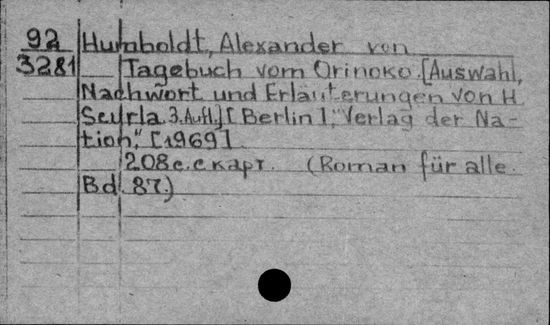 92 Humboldt, Alexander von
3281 Tagebuch vom Orinoko. [Auswahl,
Nachwort und Erläuterungen von H.
Scurla. 3. Aufl.] [Berlin], "Verlag der Na-
tion", [1969].
208 с. с карт. (Roman für alle.
Bd. 87.)